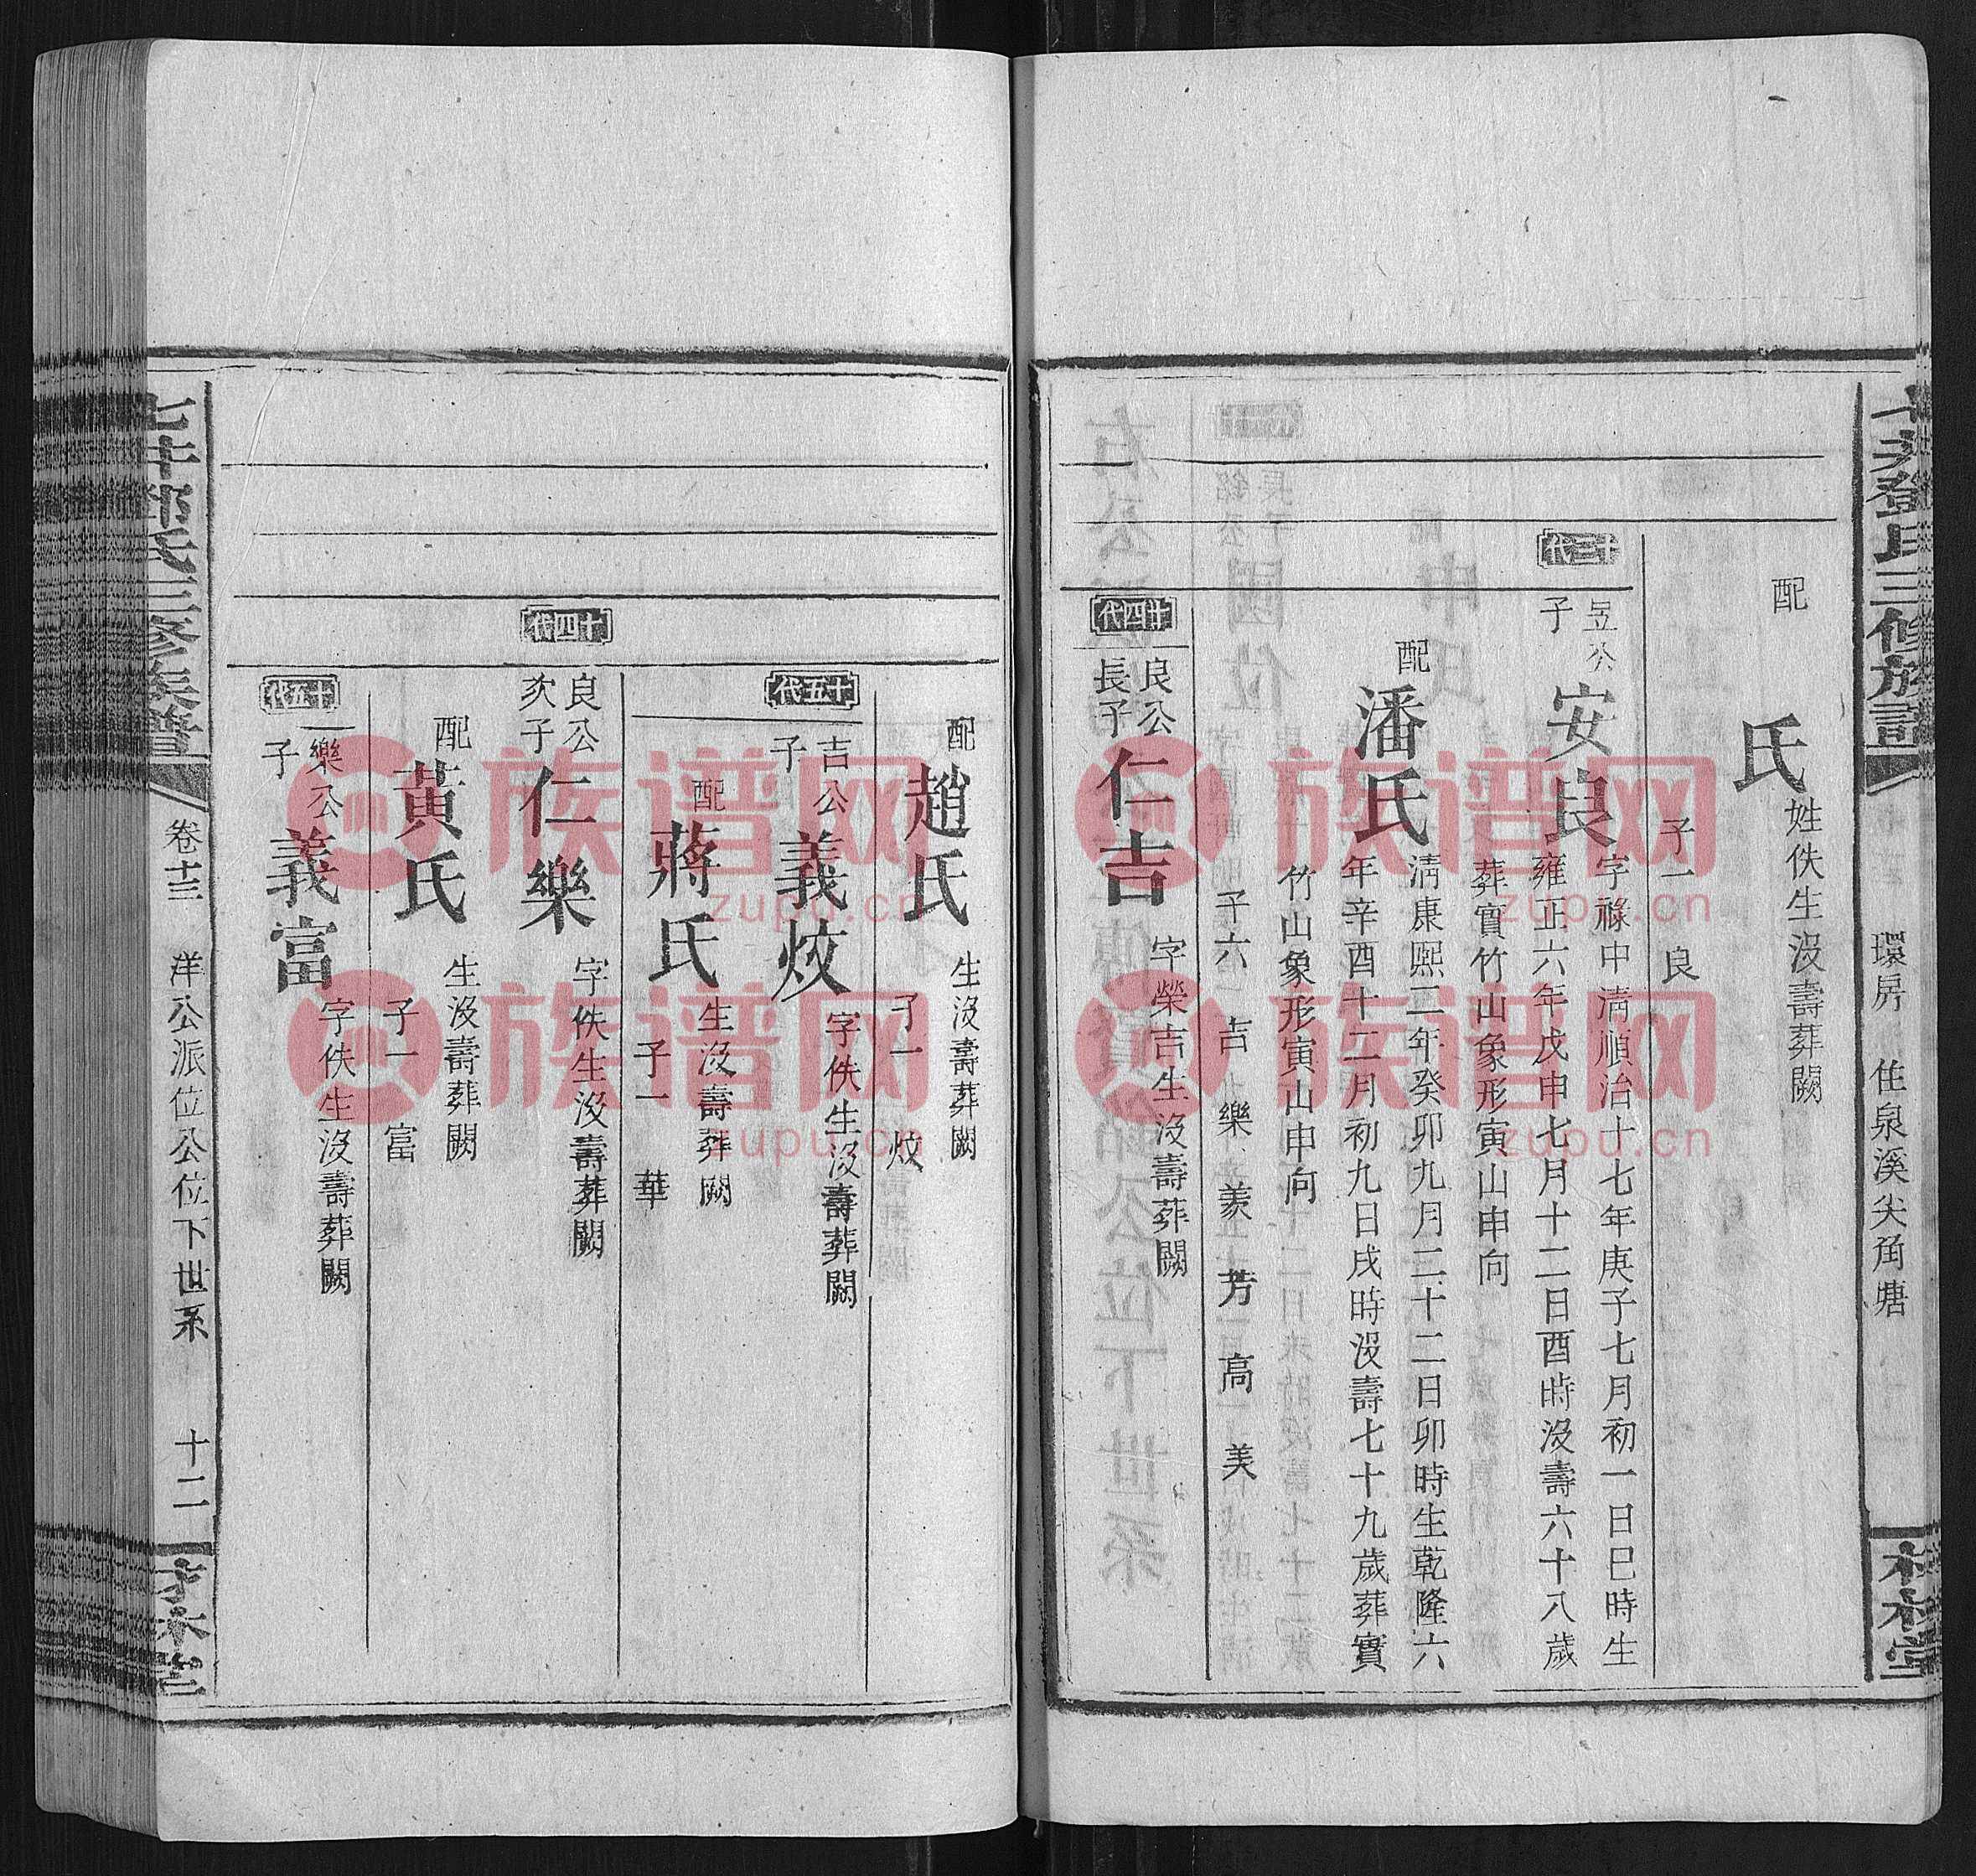 七井鄧氏三修族譜
環房 住泉溪尖角塘
木本堂
配
氏
姓佚生沒壽葬闕
子一 良
十三代
昱公
子
安良
字祿中淸順治十七年庚子七月初一日巳時生
雍正六年戊申七月十二日酉時沒壽六十八歲
葬實竹山象形寅山申向
配
潘氏
淸康熙二年癸卯九月二十二日卯時生乾隆六
年辛酉十二月初九日戌時沒壽七十九歲葬實
竹山象形寅山申向
子六 吉 樂 羨 芳 高 美
廿四代
良公
長子
仁吉
字榮吉生沒壽葬闕
配
趙氏
生沒壽葬闕
子一 炆
十五代
吉公
子
義炆
字佚生沒壽葬闕
配
蔣氏
生沒壽葬闕
子一 華
十四代
良公
次子
仁樂
字佚生沒壽葬闕
配
黃氏
生沒壽葬闕
子一 富
十五代
樂公
子
義富
字佚生沒壽葬闕
七井鄧氏三修族譜
卷十三 洋公派位公位下世系 十二
木本堂
族谱网
zupu.cn
族谱网
zupu.cn
族谱网
zupu.cn
族谱网
zupu.cn